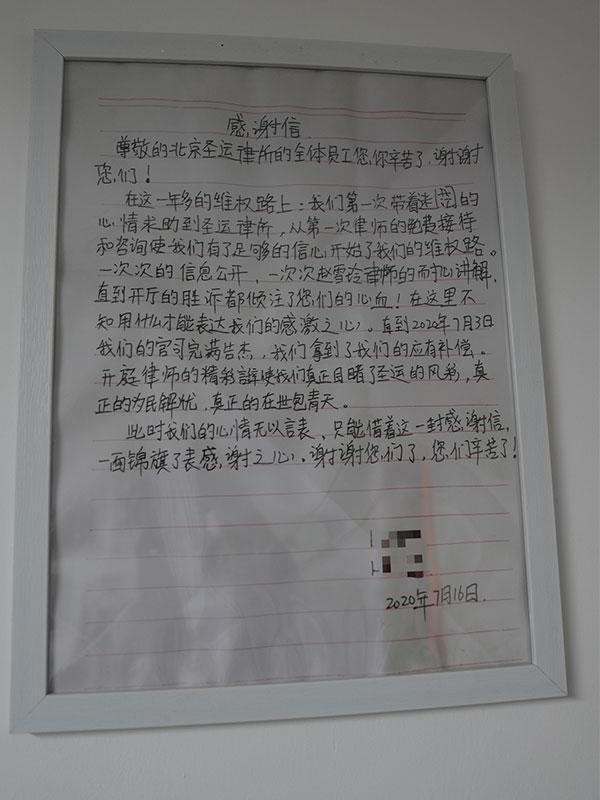 感谢信
尊敬的北京圣运律所的全体员工您,你辛苦了,谢谢
您们!
在这一年多的维权路上:我们第一次带着迷惘的
心情求助到圣运律所,从第一次律师的免费接待
和咨询使我们有了足够的信心开始了我们的维权路。
一次次的信息公开,一次次赵雪玲律师的耐心讲解,
直到开厅的胜诉都倾注了您们的心血!在这里不
知用什么才能表达我们的感激之心。直到2020年7月3日
我们的官司完满告杰,我们拿到了我们的应有补偿。
开庭律师的精彩 使我们真正目睹了圣运的风彩,真
正的为民解忧,真正的在世包青天。
此时我们的心情无以言表,只能借着这一封感谢信,
一面锦旗了表感谢之心。谢谢您们了,您们辛苦了!
2020年7月16日.